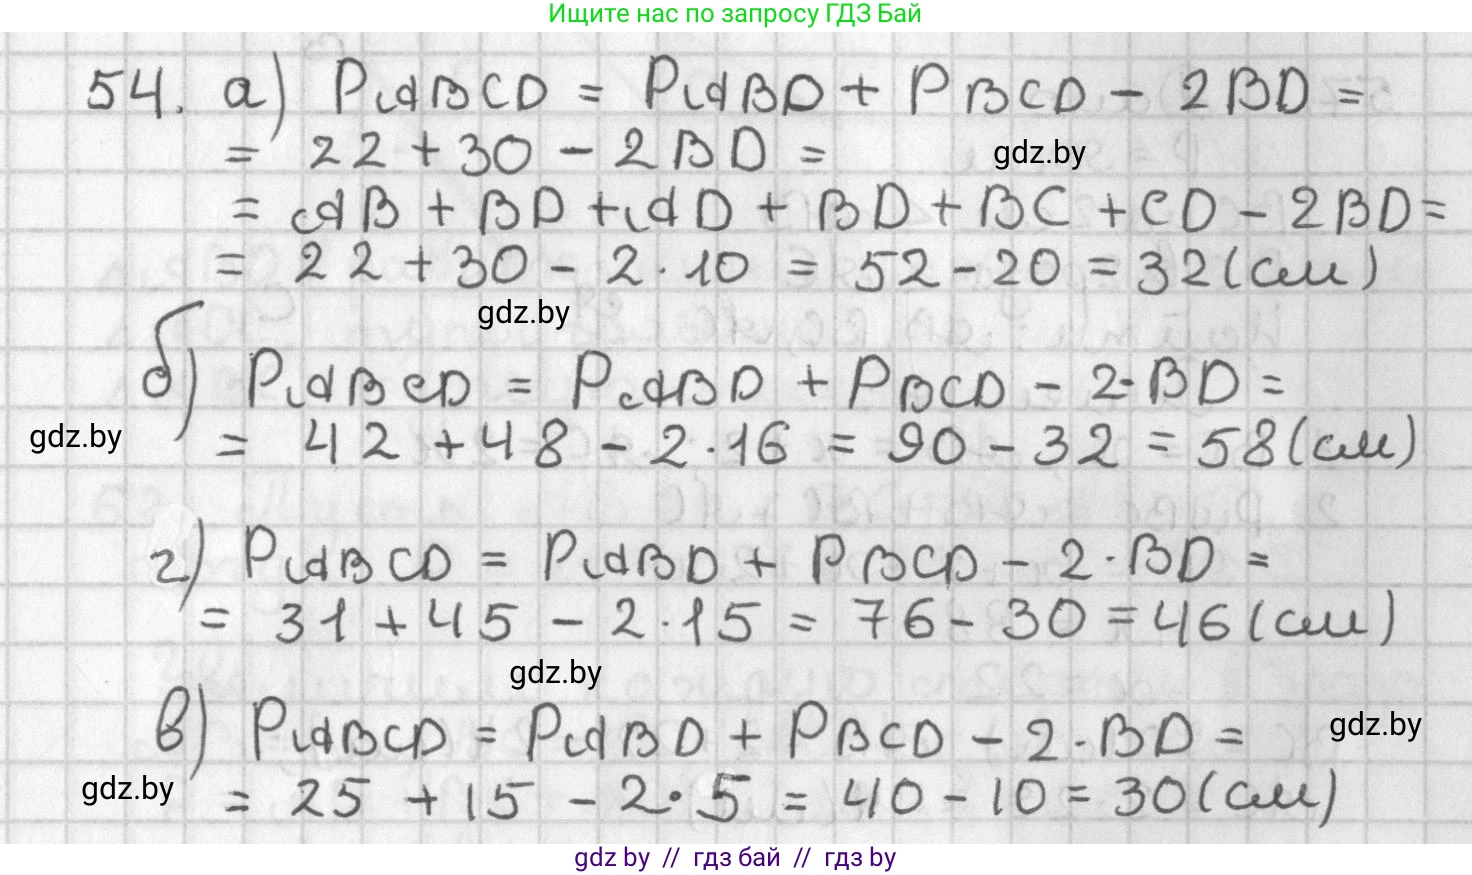 Ищите нас по запросу ГДЗ Бай
54. а) PABCD = PABD + PBCD - 2BD =
= 22 + 30 - 2BD =
gdz.by
= AB + BD + AD + BD + BC + CD - 2BD =
= 22 + 30 - 2·10 = 52 - 20 = 32 (см)
gdz.by
б) PABCD = PABD + PBCD - 2·BD =
gdz.by
= 42 + 48 - 2·16 = 90 - 32 = 58 (см)
г) PABCD = PABD + PBCD - 2·BD =
= 31 + 45 - 2·15 = 76 - 30 = 46 (см)
gdz.by
в) PABCD = PABD + PBCD - 2·BD =
gdz.by
gdz.by
= 25 + 15 - 2·5 = 40 - 10 = 30 (см)
gdz by // гдз бай // гдз by